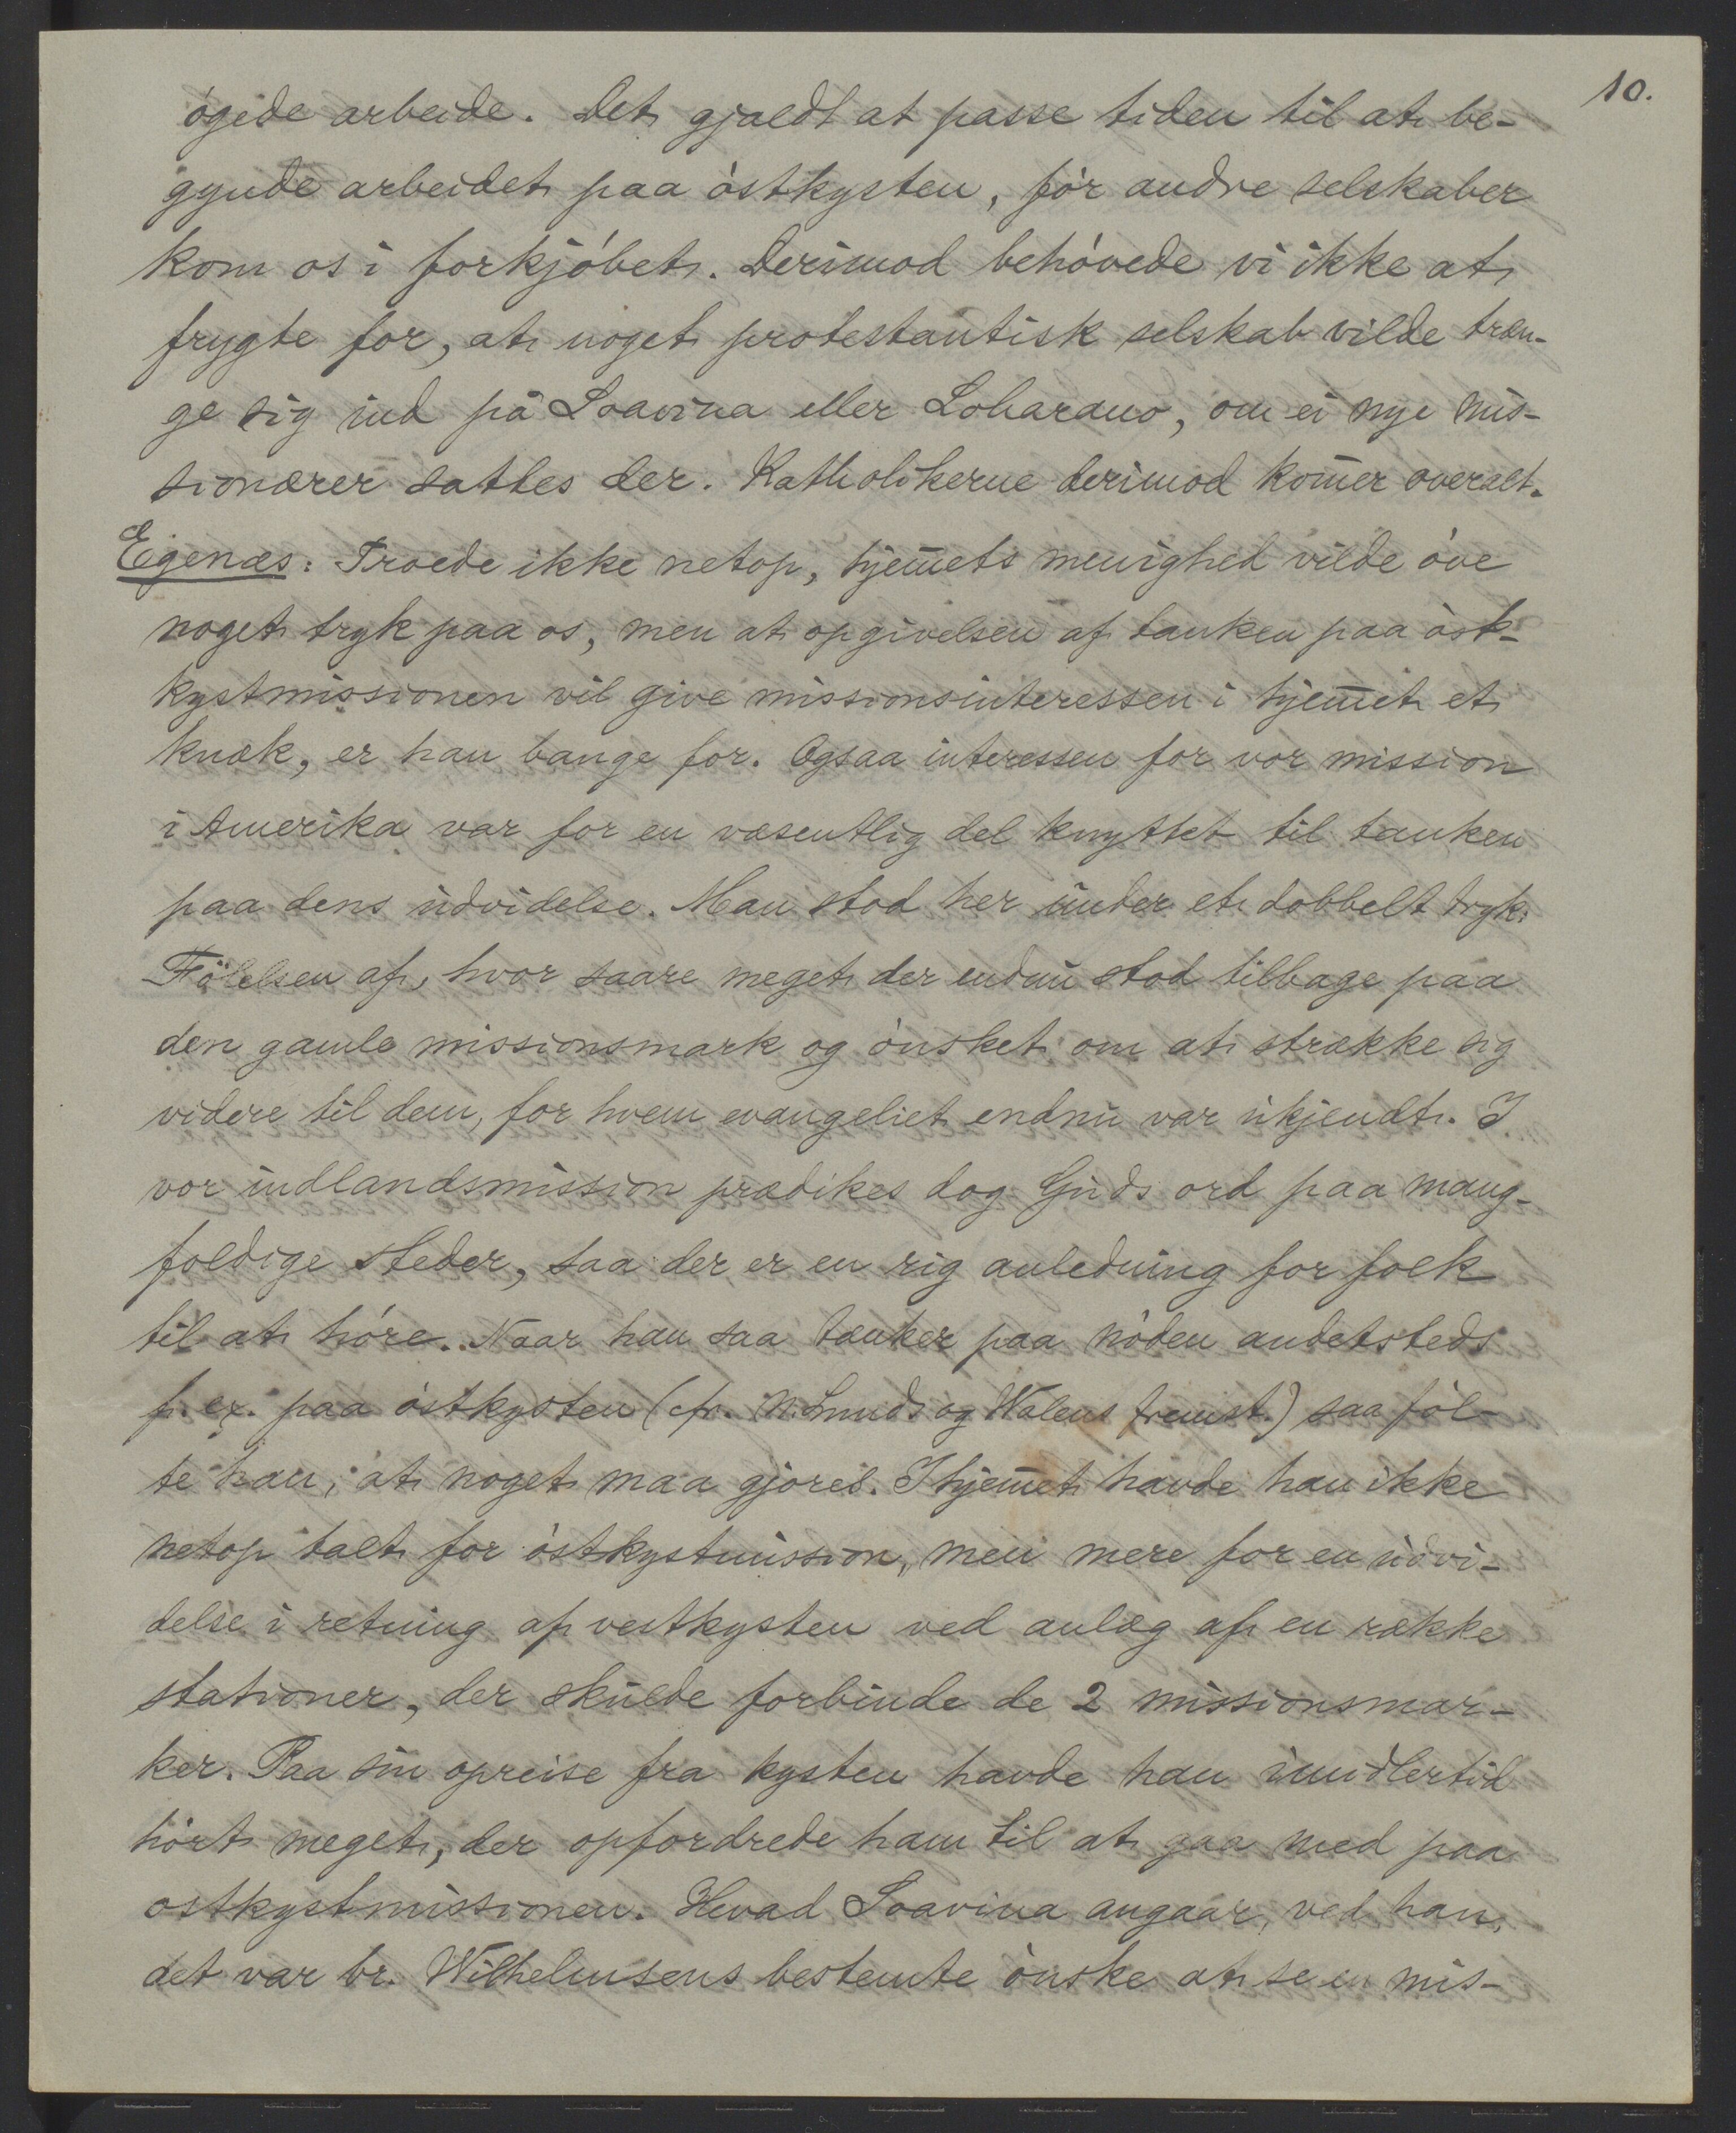 10.
ógede arbeide. Det gjaldt at passe tiden til at be-
gynde arbeidet paa óstkysten, fór andre selskaber
kom os i forkjóbet. Derimod behóvede vi ikke at
frygte for, at noget protestantisk selskab vilde træn-
ge sig ind på Soavina eller Loharano, om ei nye mis-
sionærer sattes der. Katholikerne derimod kom̅er overalt.
Eigenæs: Troede ikke netop, hjem̅ets menighed vilde óve
noget tryk paa os, men at opgivelsen af tanken paa óst-
kystmissionen vil give missionsinteressen i hjem̅et et
knæk, er han bange for. Ogsaa interessen for vor mission
i Amerika var for en væsentlig del knyttet til tanken
paa dens udvidelse. Man stod her under et dobbelt tryk:
Fölelsen af, hvor saare meget der endnu stod tilbage paa
den gamle missionsmark og ónsket om at strække sig
videre til dem, for hvem evangeliet endnu var ukjendt. I
vor indlandsmission prædikes dog Guds ord paa mang-
foldige steder, saa der er en rig anledning for folk
til at hóre. Naar han saa tænker paa nóden andetsteds
f. ex. paa óstkysten (cfr. N. Lunds og Walens fremst.) saa fól-
te han, at noget maa gjores. I hjem̅et havde han ikke
netop talt for óstkystmission, men mere for en udvi-
delse i retning af vestkysten ved anlæg af en række
stationer, der skulde forbinde de 2 missionsmar-
ker. Paa sin opreise fra kysten havde han imidlertid
hórt meget, der opfordrede ham til at gaa med paa
ostkystmissionen. Hvad Soavina angaar, ved han,
det var br. Wilhelmsens bestemte ónske at se en mis-